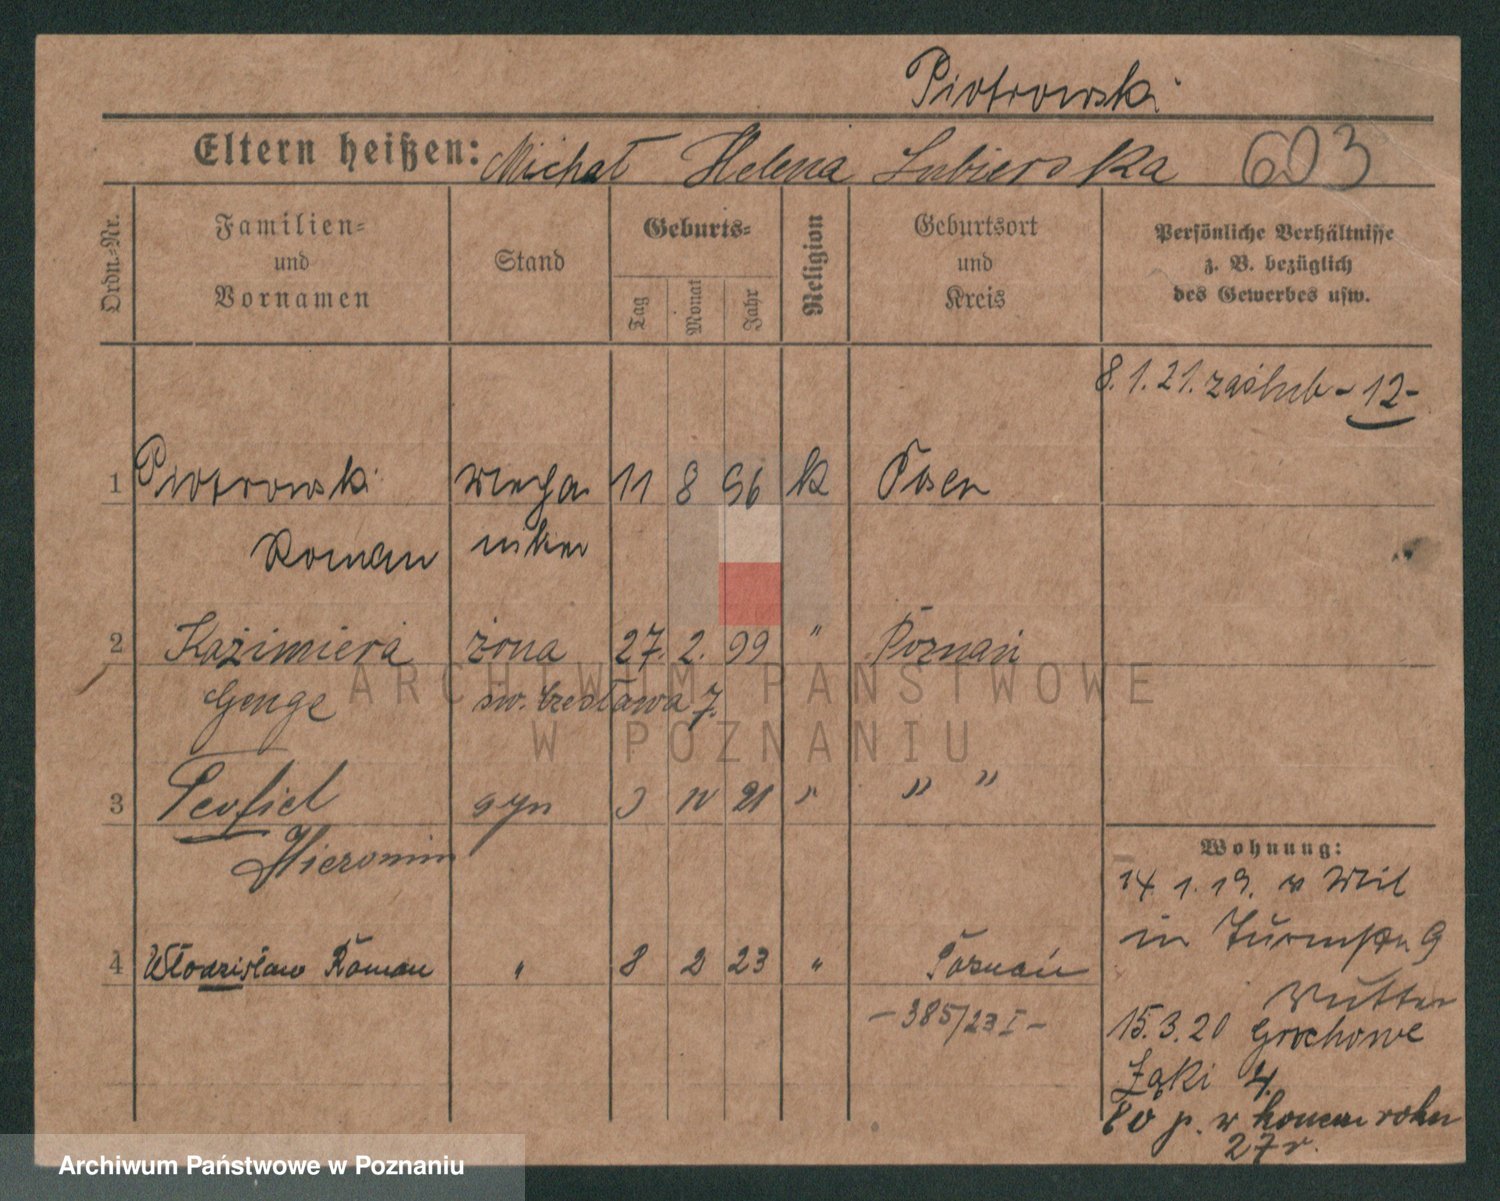 Piotrowski
Eltern heißen: Michał Helena Lubierska 603
Ordn.-Nr.
Familien- und Vornamen
Stand
Geburts-
Tag Monat Jahr
Religion
Geburtsort und Kreis
Persönliche Verhältnisse
z. B. bezüglich
des Gewerbes usw.
8.1.21. zaślub - 12-
1 Piotrowski Mecha 11 8 96 k Posen
Roman niker
2 Kaźimiera żona 27. 2. 99 " Poznań
Genge sw. Czesława 7.
3 Teofiel syn 3 IV 21 " " "
Hieronim
4 Włodzisław Roman " 8 2 23 " Poznań
- 385/23 I -
Wohnung:
14 1. 19. v Mil
in Turmstr. 9
Mutter
15.3.20 Grochowe
Łąki 4.
80 p. w koncu roku
27 r.
ARCHIWUM PAŃSTWOWE
W POZNANIU
Archiwum Państwowe w Poznaniu